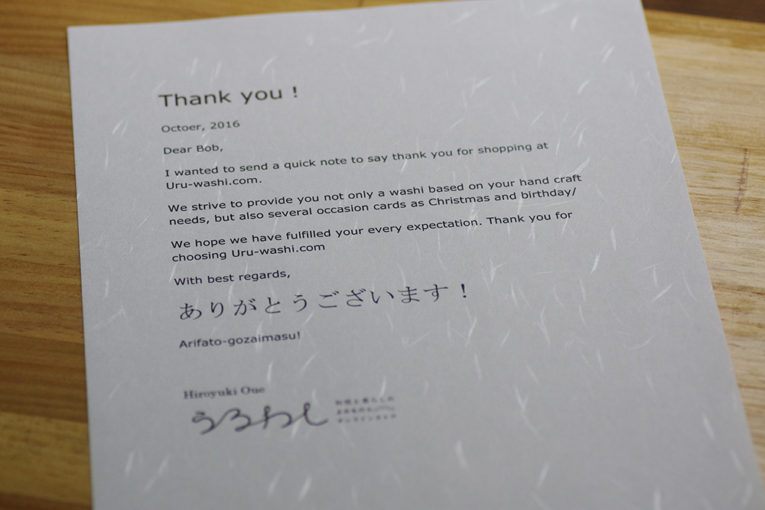 Thank you !
Octoer, 2016
Dear Bob,
I wanted to send a quick note to say thank you for shopping at
Uru-washi.com.
We strive to provide you not only a washi based on your hand craft
needs, but also several occasion cards as Christmas and birthday/
We hope we have fulfilled your every expectation. Thank you for
choosing Uru-washi.com
With best regards,
ありがとうございます！
Arifato-gozaimasu!
Hiroyuki Oue
うるわし